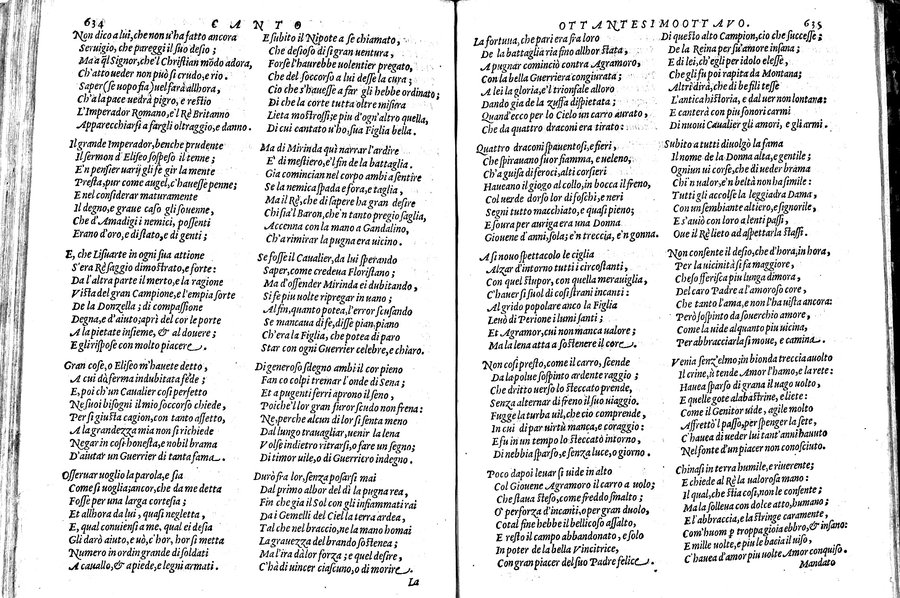 634 CANTO
Non dico a lui, che non u'ha fatto ancora
Seruigio, che pareggi il suo desio;
Ma a ql Signor, che'l Christian mōdo adora,
Ch'atto ueder non può sì crudo, e rio.
Saper (se uopo fia) uel farà allhora,
Ch'a la pace uedrà pigro, e restio
L'Imperador Romano, e'l Rè Britanno
Apparecchiarsi a fargli oltraggio, e danno.
Il grande Imperador, benche prudente
Il sermon d'Eliseo sospeso il tenne;
E'n pensier uarij gli fè gir la mente
Presta, pur come augel, c'hauesse penne;
E nel considerar maturamente
Il degno, e graue caso gli souenne,
Che d'Amadigi i nemici, possenti
Erano d'oro, e di stato, e di genti;
E, che Lisuarte in ogni sua attione
S'era Rè saggio dimostrato, e forte:
Da l'altra parte il merto, e la ragione
Vista del gran Campione, e l'empia sorte
De la Donzella; di compassione
Degna, e d'aiuto; aprì del cor le porte
A la pietate insieme, & al douere;
E gli rispose con molto piacere.
Gran cose, o Eliseo m'hauete detto,
A cui dò ferma indubitata fede;
E, poi ch'un Caualier così perfetto
Ne suoi bisogni il mio soccorso chiede,
Per sì giusta cagion, con tanto affetto,
A la grandezza mia non si richiede
Negar in cosi honesta, e nobil brama
D'aiutar un Guerrier di tanta fama.
Osseruar uoglio la parola, e sia
Come si uoglia; ancor, che da me detta
Fosse per una larga cortesia;
Et allhora da lui, quasi negletta,
E, qual conuiensi a me, qual ei desia
Gli darò aiuto, e uò, c'hor, hor si metta
Numero in ordin grande di soldati
A cauallo, & a piede, e legni armati.
E subito il Nipote a se chiamato,
Che desioso di sì gran uentura,
Forse l'haurebbe uolentier pregato,
Che del soccorso a lui desse la cura;
Cio che s'hauesse a far gli hebbe ordinato;
Di che la corte tutta oltre misura
Lieta mostrossi; e piu d'ogn'altro quella,
Di cui cantato u'hò, sua Figlia bella.
Ma di Mirinda quì narrar l'ardire
E' di mestiero, e'l fin de la battaglia.
Gia comincian nel corpo ambi a sentire
Se la nemica spada e fora, e taglia,
Ma il Rè, che di sapere ha gran desire
Chi sia'l Baron, che'n tanto pregio saglia,
Accenna con la mano a Gandalino,
Ch'a rimirar la pugna era uicino.
Se fosse il Caualier, da lui sperando
Saper, come credeua Floristano;
Ma d'offender Mirinda ei dubitando,
Si fe piu uolte ripregar in uano;
Al fin, quanto potea, l'error scusando
Se mancaua di fe, disse pian, piano
Ch'era la Figlia, che potea di paro
Star con ogni Guerrier celebre, e chiaro.
Di generoso sdegno ambi il cor pieno
Fan co colpi tremar l'onde di Sena;
Et a pugenti ferri aprono il seno,
Poiche'l lor gran furor scudo non frena:
Ne, perche alcun di lor si senta meno
Dal lungo trauagliar, uenir la lena
Volse indietro ritrarsi, o fare un segno;
Di timor uile, o di Guerriero indegno.
Durò fra lor, senza posarsi mai
Dal primo albor del dì la pugna rea,
Fin che gia il Sol con gli infiammati rai
Da i Gemelli del Ciel la terra ardea,
Tal che nel braccio, ne la mano homai
La grauezza del brando sostenea;
Ma l'ira dà lor forza; e quel desire,
C'hà di uincer ciascuno, o di morire.
La
OTTANTESIMOOTTAVO. 635
La fortuna, che pari era fra loro
De la battaglia ria fino allhor stata,
A pugnar cominciò contra Agramoro,
Con la bella Guerriera congiurata;
A lei la gloria, e'l trionfale alloro
Dando gia de la zuffa dispietata;
Quand'ecco per lo Cielo un carro aurato,
Che da quattro draconi era tirato:
Quattro draconi spauentosi, e fieri,
Che spirauano fuor fiamma, e ueleno;
Ch'a guisa di feroci, alti corsieri
Haueano il giogo al collo, in bocca il freno,
Col uerde dorso lor di foschi, e neri
Segni tutto macchiato, e quasi pieno;
E soura per auriga era una Donna
Giouene d'anni, sola; e'n treccia, e'n gonna.
A sì nouo spettacolo le ciglia
Alzar d'intorno tutti i circostanti,
Con quel stupor, con quella merauiglia,
C'hauer si suol di così strani incanti:
Al grido popolare anco la Figlia
Leuò di Perione i lumi santi;
Et Agramor, cui non manca ualore;
Ma la lena atta a sostenere il core.
Non così presto, come il carro, scende
Da la polue sospinto ardente raggio;
Che dritto uerso lo steccato prende,
Senza alternar di freno il suo uiaggio.
Fugge la turba uil, che cio comprende,
In cui di par uirtù manca, e coraggio:
E fu in un tempo lo steccato intorno,
E di nebbia sparso, e senza luce, o giorno.
Poco dapoi leuar si uide in alto
Col Giouene Agramoro il carro a uolo;
Che staua steso, come freddo smalto;
O per forza d'incanti, o per gran duolo,
Cotal fine hebbe il bellicoso assalto,
E restò il campo abbandonato, e solo
In poter de la bella Vincitrice,
Con gran piacer del suo Padre felice.
Di questo alto Campion, cio che successe;
De la Reina per su'amore insana;
E di lei, ch'egli per idolo elesse,
Che gli fu poi rapita da Montana;
Altri dirà, che di be fili tesse
L'antica historia, e dal uer non lontana:
E canterà con piu sonori carmi
Di nuoui Caualier gli amori, e gli armi.
Subito a tutti diuolgò la fama
Il nome de la Donna alta, e gentile;
Ogniun ui corse, che di ueder brama
Chi'n ualor, e'n beltà non ha simile:
Tutti gli accolse la leggiadra Dama,
Con un sembiante altiero, e signorile,
E s'auiò con loro a lenti passi,
Oue il Rè lieto ad aspettarla stassi.
Non consente il desio, che d'hora, in hora,
Per la uicinità si fa maggiore,
Che sofferisca piu lunga dimora,
Del caro Padre a l'amoroso core,
Che tanto l'ama, e non l'ha uista ancora:
Però sospinto da souerchio amore,
Come la uide alquanto piu uicina,
Per abbracciarla si moue, e camina.
Venia senz'elmo; in bionda treccia auolto
Il crine, ù tende Amor l'hamo, e la rete:
Hauea sparso di grana il uago uolto,
E quelle gote alabastrine, e liete:
Come il Genitor uide, agile molto
Affrettò'l passo, per spenger la sete,
C'hauea di ueder lui tant'anni hauuto
Nel fonte d'un piacer non conosciuto.
Chinasi in terra humile, e riuerente;
E chiede al Rè la ualorosa mano:
Il qual, che stia così, non le consente;
Ma la solleua con dolce atto, humano;
E l'abbraccia, e la stringe caramente,
Com'huom p troppa gioia ebbro, & insano:
E mille uolte, e piu le bacia il uiso,
C'hauea d'amor piu uolte Amor conquiso.
Mandato